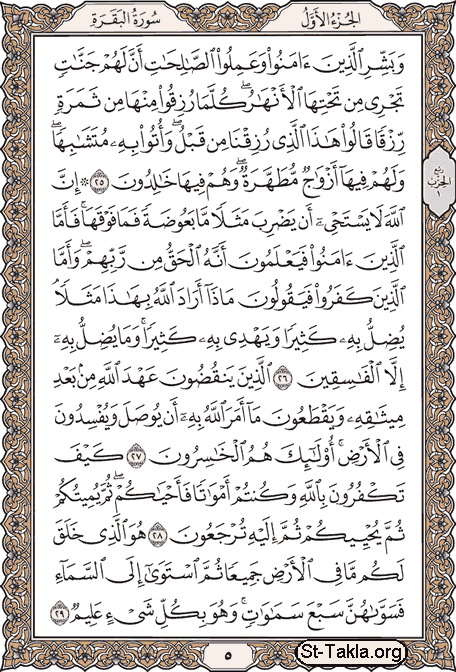 الجُزءُ الأَوَّلُ
سُورَةُ البَقَرَةِ
وَبَشِّرِ ٱلَّذِينَ ءَامَنُوا۟ وَعَمِلُوا۟ ٱلصَّٰلِحَٰتِ أَنَّ لَهُمْ جَنَّٰتٍ
تَجْرِى مِن تَحْتِهَا ٱلْأَنْهَٰرُ ۖ كُلَّمَا رُزِقُوا۟ مِنْهَا مِن ثَمَرَةٍ
رِّزْقًا ۙ قَالُوا۟ هَٰذَا ٱلَّذِى رُزِقْنَا مِن قَبْلُ ۖ وَأُتُوا۟ بِهِۦ مُتَشَٰبِهًا ۖ
وَلَهُمْ فِيهَآ أَزْوَٰجٌ مُّطَهَّرَةٌ ۖ وَهُمْ فِيهَا خَٰلِدُونَ ٢٥ ۞ إِنَّ
ٱللَّهَ لَا يَسْتَحْىِۦٓ أَن يَضْرِبَ مَثَلًا مَّا بَعُوضَةً فَمَا فَوْقَهَا ۚ فَأَمَّا
ٱلَّذِينَ ءَامَنُوا۟ فَيَعْلَمُونَ أَنَّهُ ٱلْحَقُّ مِن رَّبِّهِمْ ۖ وَأَمَّا
ٱلَّذِينَ كَفَرُوا۟ فَيَقُولُونَ مَاذَآ أَرَادَ ٱللَّهُ بِهَٰذَا مَثَلًا ۘ
يُضِلُّ بِهِۦ كَثِيرًا وَيَهْدِى بِهِۦ كَثِيرًا ۚ وَمَا يُضِلُّ بِهِۦٓ
إِلَّا ٱلْفَٰسِقِينَ ٢٦ ٱلَّذِينَ يَنقُضُونَ عَهْدَ ٱللَّهِ مِنۢ بَعْدِ
مِيثَٰقِهِۦ وَيَقْطَعُونَ مَآ أَمَرَ ٱللَّهُ بِهِۦٓ أَن يُوصَلَ وَيُفْسِدُونَ
فِى ٱلْأَرْضِ ۚ أُو۟لَٰٓئِكَ هُمُ ٱلْخَٰسِرُونَ ٢٧ كَيْفَ
تَكْفُرُونَ بِٱللَّهِ وَكُنتُمْ أَمْوَٰتًا فَأَحْيَٰكُمْ ۖ ثُمَّ يُمِيتُكُمْ
ثُمَّ يُحْيِيكُمْ ثُمَّ إِلَيْهِ تُرْجَعُونَ ٢٨ هُوَ ٱلَّذِى خَلَقَ
لَكُم مَّا فِى ٱلْأَرْضِ جَمِيعًا ثُمَّ ٱسْتَوَىٰٓ إِلَى ٱلسَّمَآءِ
فَسَوَّىٰهُنَّ سَبْعَ سَمَٰوَٰتٍ ۚ وَهُوَ بِكُلِّ شَىْءٍ عَلِيمٌ ٢٩
ربع
الحزب
١
٥
St-Takla.org